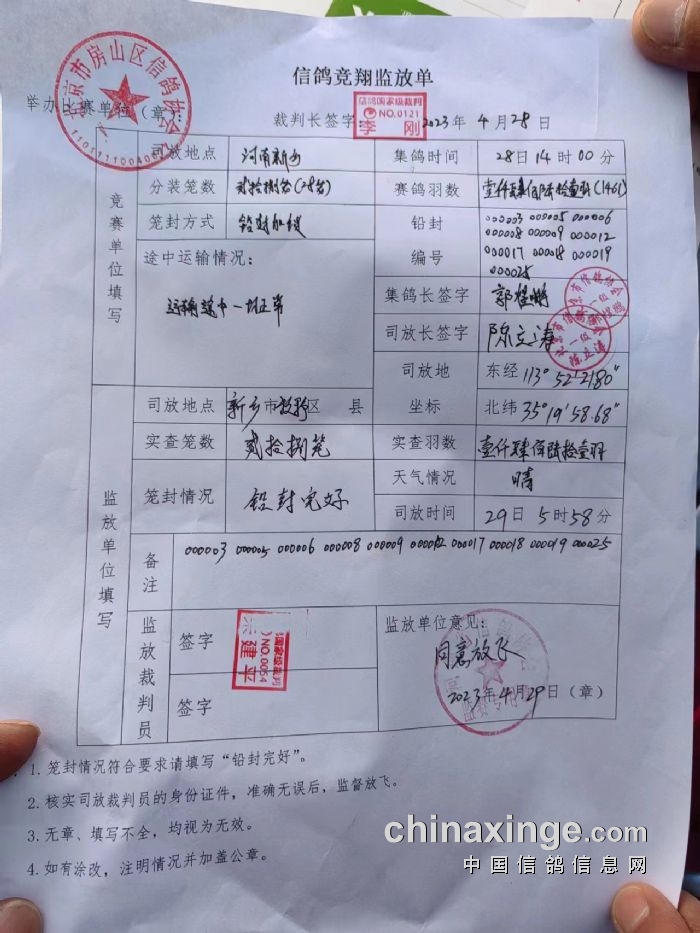 信鸽竞翔监放单
北京市房山区信鸽协会
举办比赛单位（章）：
裁判长签字：
信鸽国家级裁判
NO.0121
李刚
2023年4月28日
竞赛单位填写
司放地点 河南新乡 集鸽时间 28日14时00分
分装笼数 贰拾捌笼(28笼) 赛鸽羽数 壹仟肆佰陆拾壹羽(1461)
笼封方式 铅封加锁 铅封编号
000003 000005 000006
000008 000009 000012
000017 000018 000019
000025
途中运输情况：
运输途中一切正常
集鸽长签字
司放长签字 陈立涛
司放地坐标 东经 113°52′21.80″
北纬 35°19′58.68″
监放单位填写
司放地点 新乡市牧野区 县
实查笼数 贰拾捌笼 实查羽数 壹仟肆佰陆拾壹羽
笼封情况 铅封完好 天气情况 晴
司放时间 29日5时58分
备注 000003 000005 000006 000008 000009 000012 000017 000018 000019 000025
监放裁判员 签字
国家级裁判
NO.0054
建平
签字
监放单位意见：
同意放飞
2023年4月29日（章）
1.笼封情况符合要求请填写“铅封完好”。
2.核实司放裁判员的身份证件，准确无误后，监督放飞。
3.无章、填写不全，均视为无效。
4.如有涂改，注明情况并加盖公章。
chinaxinge.com
中国信鸽信息网